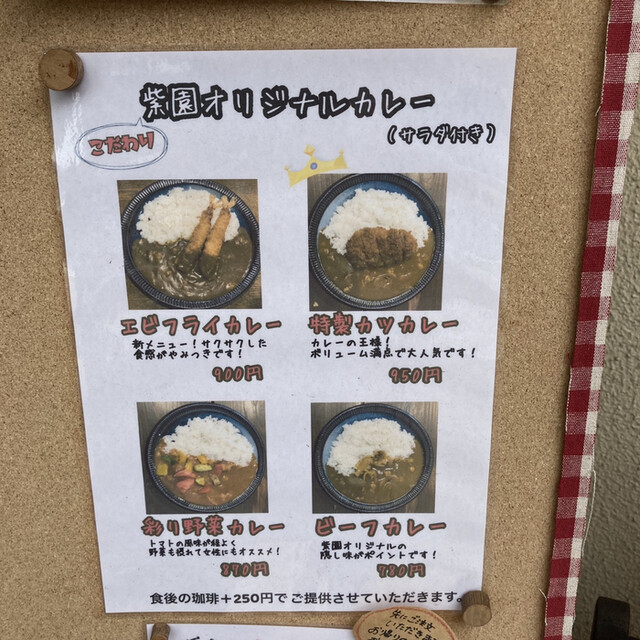 紫園オリジナルカレー
こだわり
(サラダ付き)
エビフライカレー
新メニュー!サクサクした
食感がやみつきです!
900円
特製カツカレー
カレーの王様!
ボリューム満点で大人気です!
950円
彩り野菜カレー
トマトの風味が程よく
野菜も摂れて女性にもオススメ!
870円
ビーフカレー
紫園オリジナルの
隠し味がポイントです!
780円
食後の珈琲+250円でご提供させていただきます。
先にご注文
いただきます